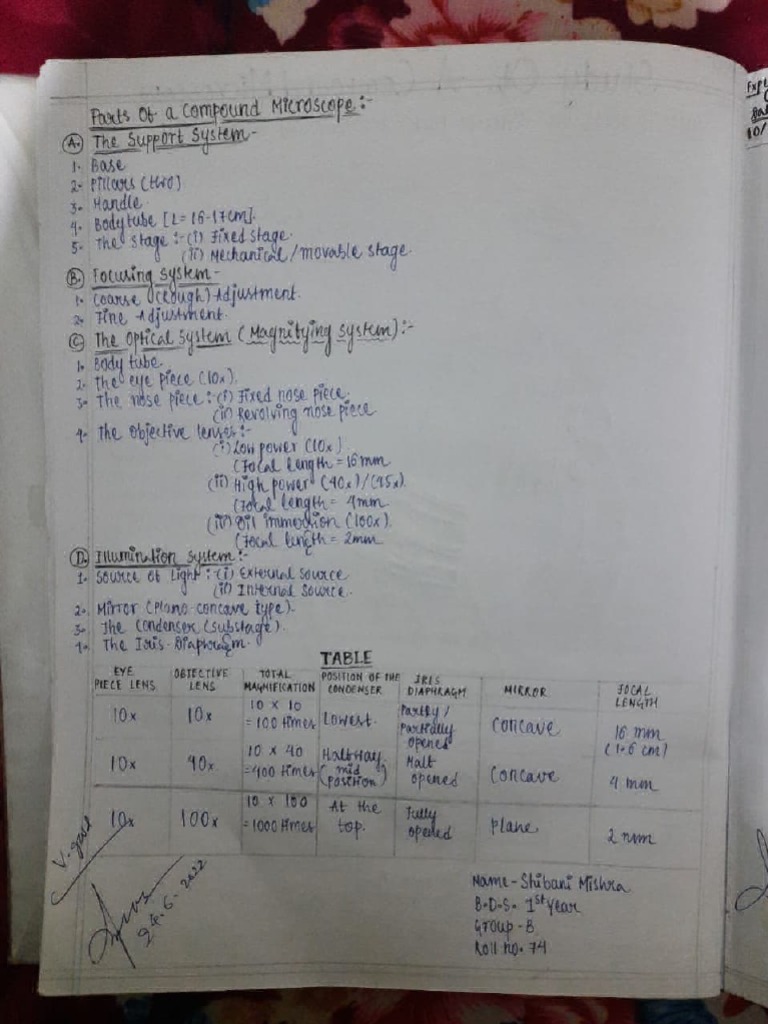 Parts Of a Compound Microscope:-
A. The Support System-
1. Base
2. Pillars (two)
3. Handle.
4. Body tube [L= 16-17cm].
5. The stage :- (i) Fixed stage.
(ii) Mechanical / movable stage.
B. Focusing System-
1. Coarse (Rough) Adjustment.
2. Fine Adjustment.
C. The Optical System (Magnifying System):-
1. Body tube.
2. The eye piece (10x).
3. The nose piece :- (i) Fixed nose piece.
(ii) Revolving nose piece
4. The Objective lenses:-
(i) Low power (10x)
(Focal length = 16mm
(ii) High power (40x)/(45x).
(Focal length = 4mm
(iv) Oil immersion (100x).
(Focal length = 2mm
D. Illumination System:-
1. Source of Light :- (i) External Source
(ii) Internal Source.
2. Mirror (Plano-concave type).
3. The Condenser (substage).
4. The Iris-Diaphragm.
TABLE
EYE PIECE LENS OBJECTIVE LENS TOTAL MAGNIFICATION POSITION OF THE CONDENSER IRIS DIAPHRAGM MIRROR FOCAL LENGTH
10x 10x 10 x 10 = 100 times Lowest. Partly / Partially opened Concave 16 mm (1.6 cm)
10x 40x 10 x 40 = 400 times Halfway (mid position) Half opened Concave 4 mm
10x 100x 10 x 100 = 1000 times At the top. Fully opened Plane. 2 mm
V. good
24.6.2022
Name - Shibani Mishra
B.D.S. 1st Year
Group - B
Roll no. 74